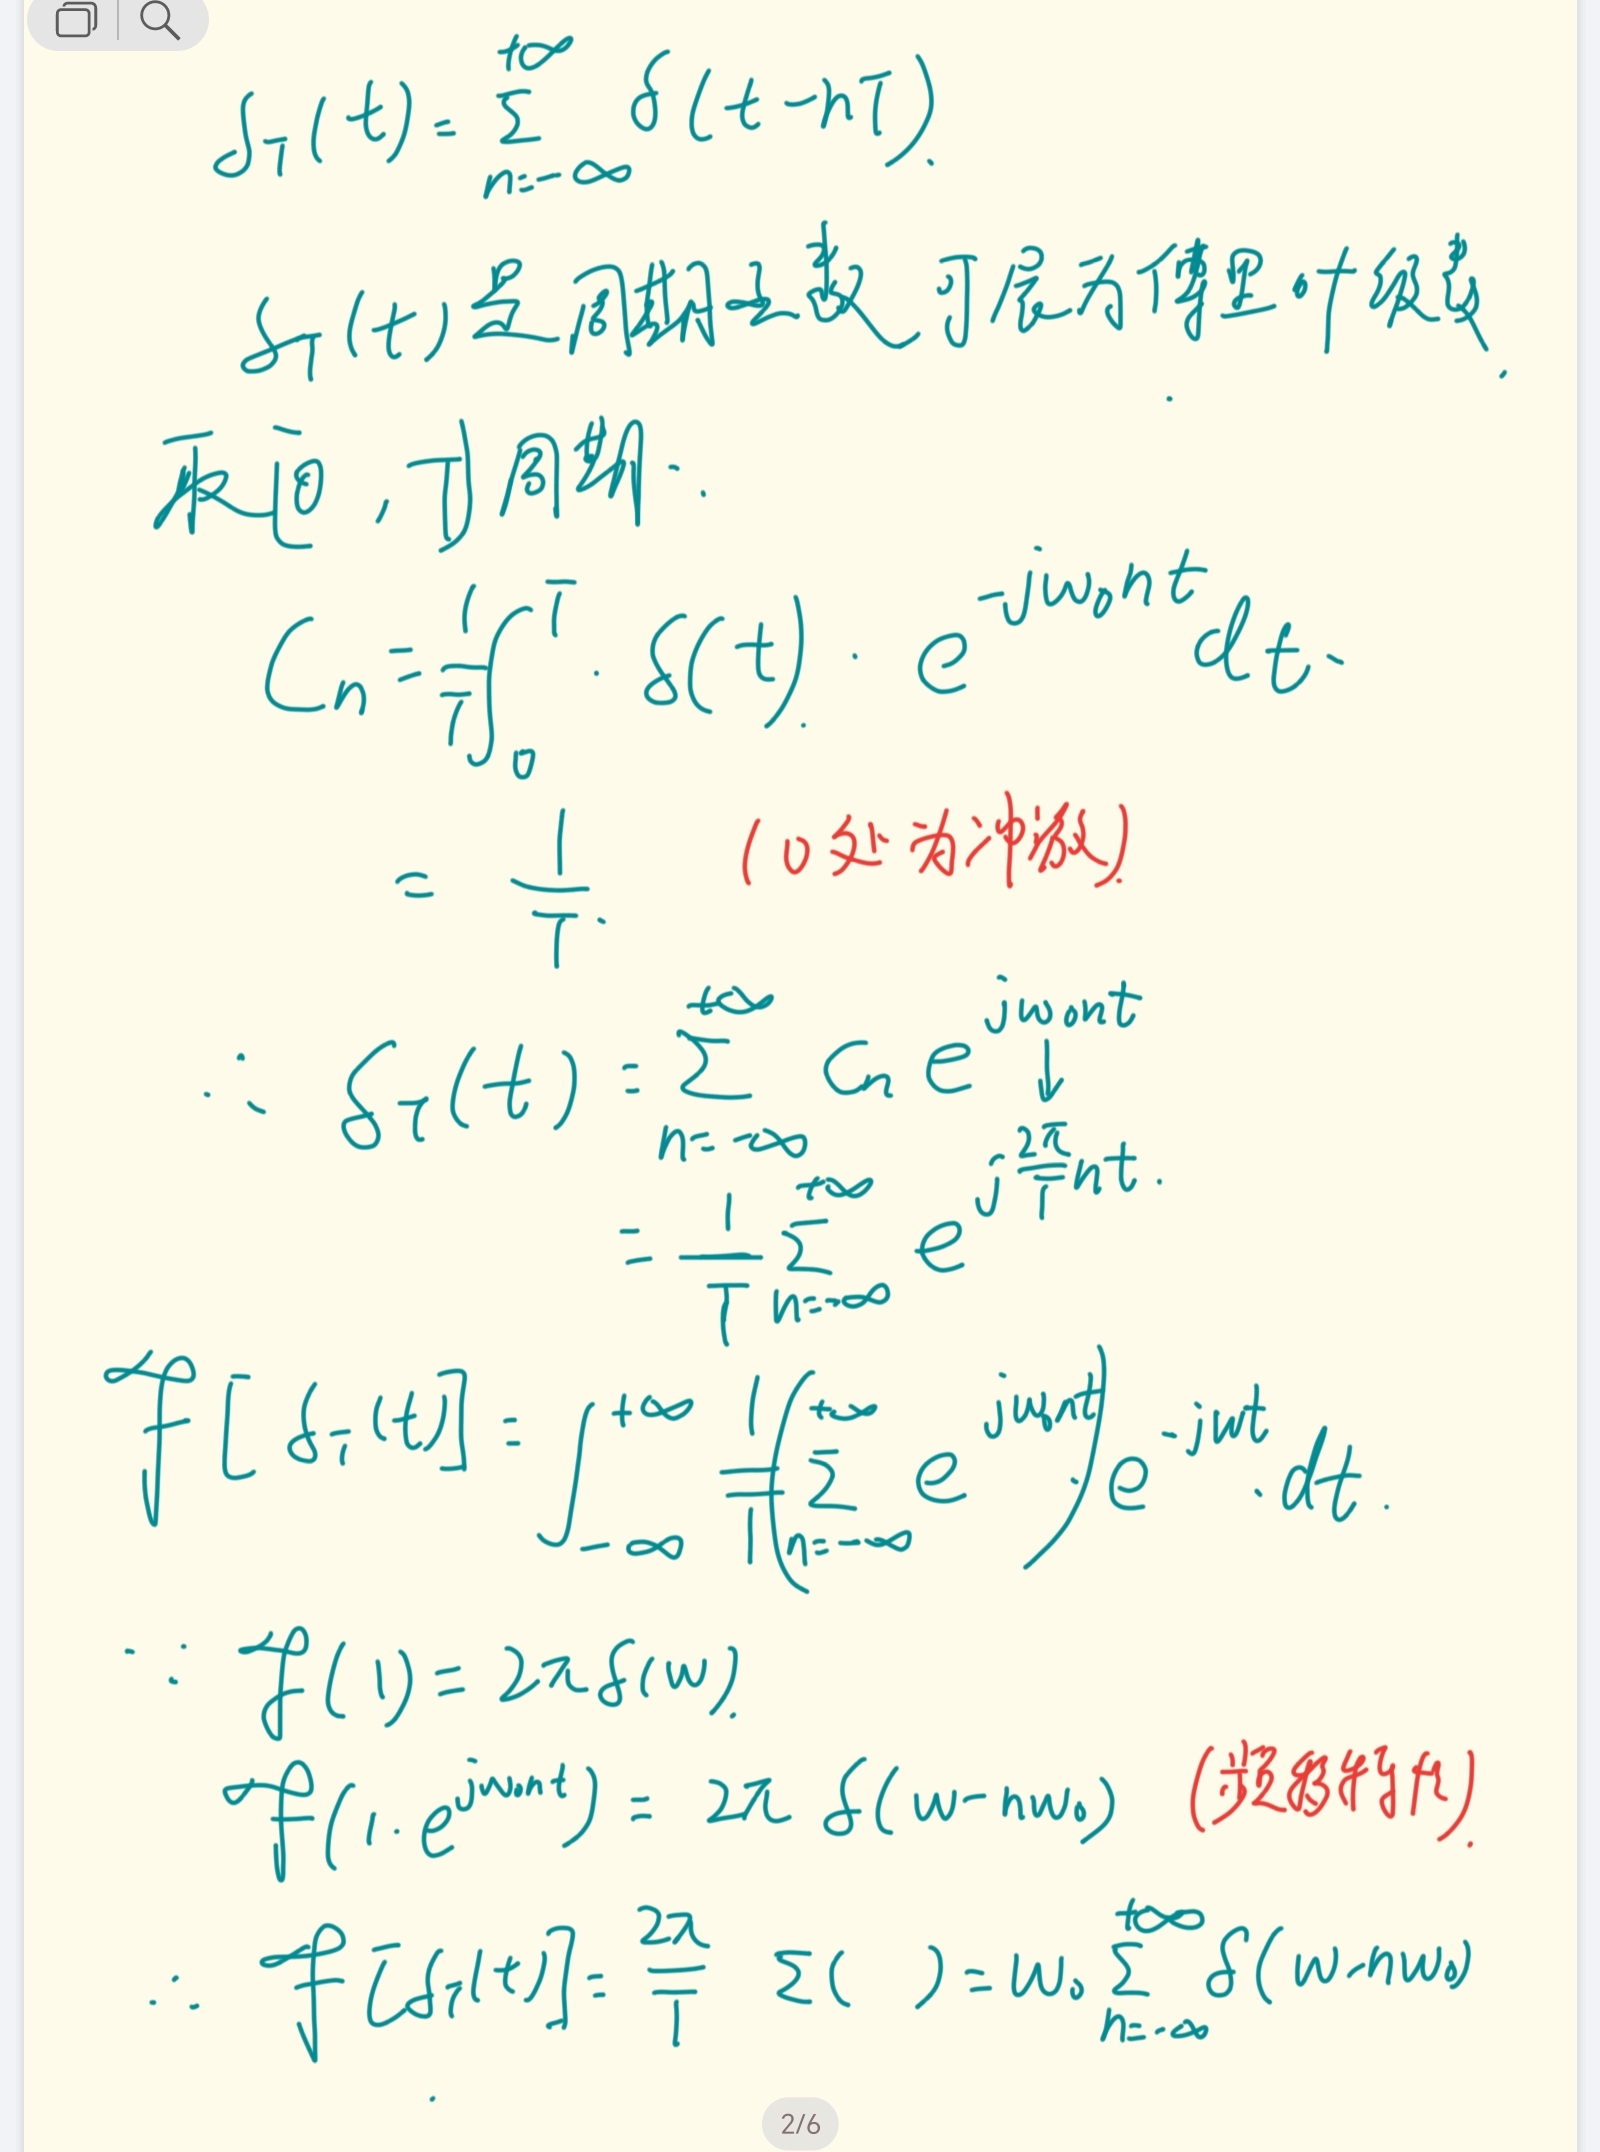 δ_T(t) = Σ_{n=-∞}^{+∞} δ(t-nT).
δ_T(t) 是周期函数 可展为傅里叶级数.
取 [0, T] 周期.
C_n = 1/T ∫_0^T · δ(t) · e^{-jw₀nt} dt.
= 1/T. (0处为冲激).
∴ δ_T(t) = Σ_{n=-∞}^{+∞} C_n e^{jw₀nt}
↓
= 1/T Σ_{n=-∞}^{+∞} e^{j 2π/T nt}.
ℱ[δ_T(t)] = ∫_{-∞}^{+∞} 1/T (Σ_{n=-∞}^{+∞} e^{jw₀nt}) e^{-jwt} · dt.
∵ ℱ(1) = 2πδ(w).
ℱ(1·e^{jw₀nt}) = 2π δ(w-nw₀) (频移特性).
∴ ℱ[δ_T(t)] = 2π/T Σ( ) = w₀ Σ_{n=-∞}^{+∞} δ(w-nw₀)
2/6